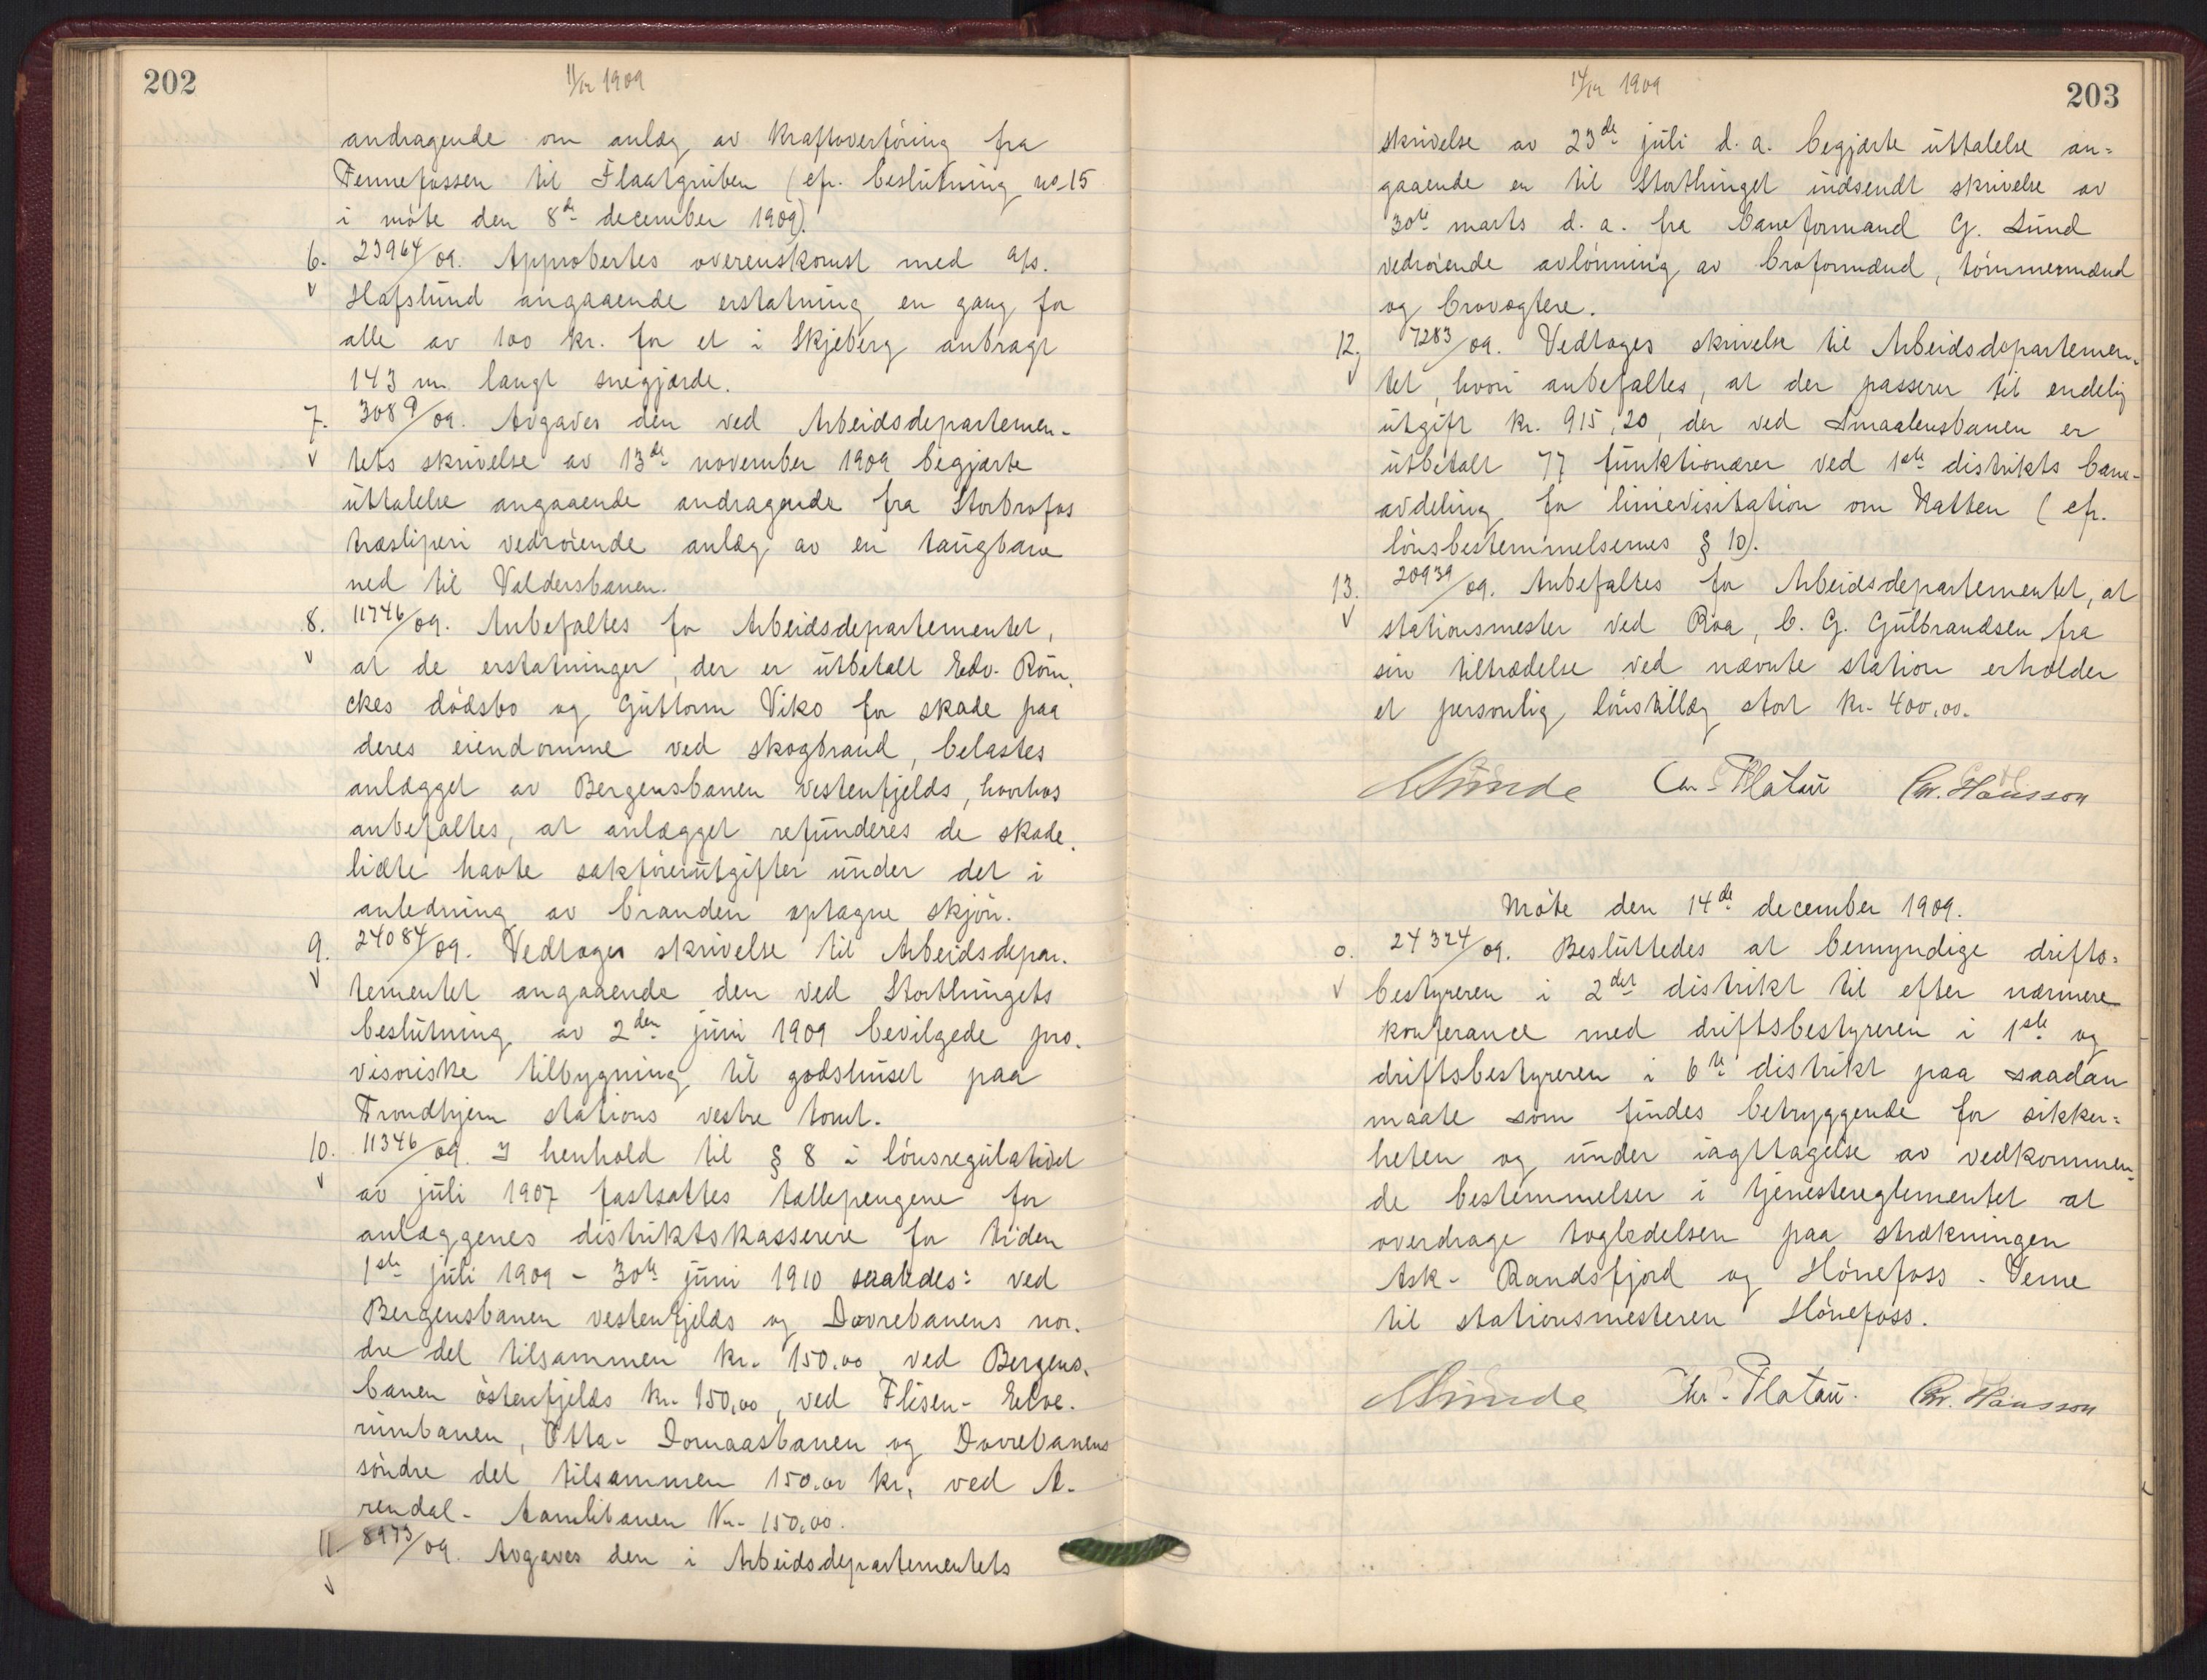 202
11/12 1909
andragende om anlæg av kraftoverföring fra
Fennefossen til Flaatgruben (cfr. beslutning no. 15
i möte den 8de december 1909).
6. 23964/09. Approbertes overenskomst med A/s.
Hafslund angaaende erstatning en gang for
alle av 100 kr. for et i Skjeberg anbragt
143 m. langt snegjærde.
7. 3089/09. Avgaves den ved Arbeidsdepartemen-
tets skrivelse av 13de november 1909 begjærte
uttalelse angaaende andragende fra Storbrofos
træsliperi vedrörende anlæg av en taugbane
ned til Valdersbanen.
8. 11746/09. Anbefaltes for Arbeidsdepartementet,
at de erstatninger, der er utbetalt Edv. Röm-
ckes dödsbo og Guttorm Viko for skade paa
deres eiendomme ved skogbrand, belastes
anlægget av Bergensbanen vestenfjelds, hvorhos
anbefaltes, at anlægget refunderes de skade-
lidte havte sakförerutgifter under det i
anledning av branden optagne skjön.
9. 24084/09. Vedtoges skrivelse til Arbeidsdepar-
tementet angaaende den ved Storthingets
beslutning av 2den juni 1909 bevilgede pro-
visoriske tilbygning til godshuset paa
Trondhjem stations vestre tomt.
10. 11346/09. I henhold til § 8 i lönsregulativet
av juli 1907 fastsattes tællepengene for
anlæggenes distriktskasserere for tiden
1ste juli 1909 - 30te juni 1910 saaledes: ved
Bergensbanen vestenfjelds og Dovrebanens nor-
dre del tilsammen kr. 150.00, ved Bergens-
banen östenfjelds kr. 150,00, ved Flisen- Elve-
rumbanen, Otta- Domaasbanen og Dovrebanens
söndre del tilsammen 150.00 kr., ved A-
rendal- Aamlibanen kr. 150,00.
11. 8973/09. Avgaves den i Arbeidsdepartementets
203
14/12 1909
skrivelse av 23de juli d. a. begjærte uttalelse an-
gaaende en til Storthinget indsendt skrivelse av
30te marts d. a. fra baneformand G. Lund
vedrörende avlönning av broformænd, tömmermænd
og brovogtere.
12. 7283/09. Vedtoges skrivelse til Arbeidsdepartemen-
tet, hvori anbefaltes, at der passerer til endelig
utgift kr. 915,20, der ved Smaalensbanen er
utbetalt 77 funktionærer ved 1ste distrikts bane-
avdeling for linievisitation om Natten (cfr.
lönsbestemmelsernes § 10).
13. 20939/09. Anbefaltes for Arbeidsdepartementet, at
stationsmester ved Roa, C. G. Gulbrandsen fra
sin tiltrædelse ved nævnte station erholder
et personlig lönstillæg stort kr. 400,00.
Munde Chr. Platou Chr. Hansson
Möte den 14de december 1909.
0. 24324/09. Besluttedes at bemyndige drifts-
bestyreren i 2det distrikt til efter nærmere
konferance med driftsbestyreren i 1ste og
driftsbestyreren i 6te distrikt paa saadan
maate som findes betryggende for sikker-
heten og under iagttagelse av vedkommen-
de bestemmelser i tjenestereglementet at
overdrage togledelsen paa strækningen
Ask- Randsfjord og Hönefoss - Veme
til stationsmesteren Hönefoss.
Munde Chr. Platou. Chr. Hansson